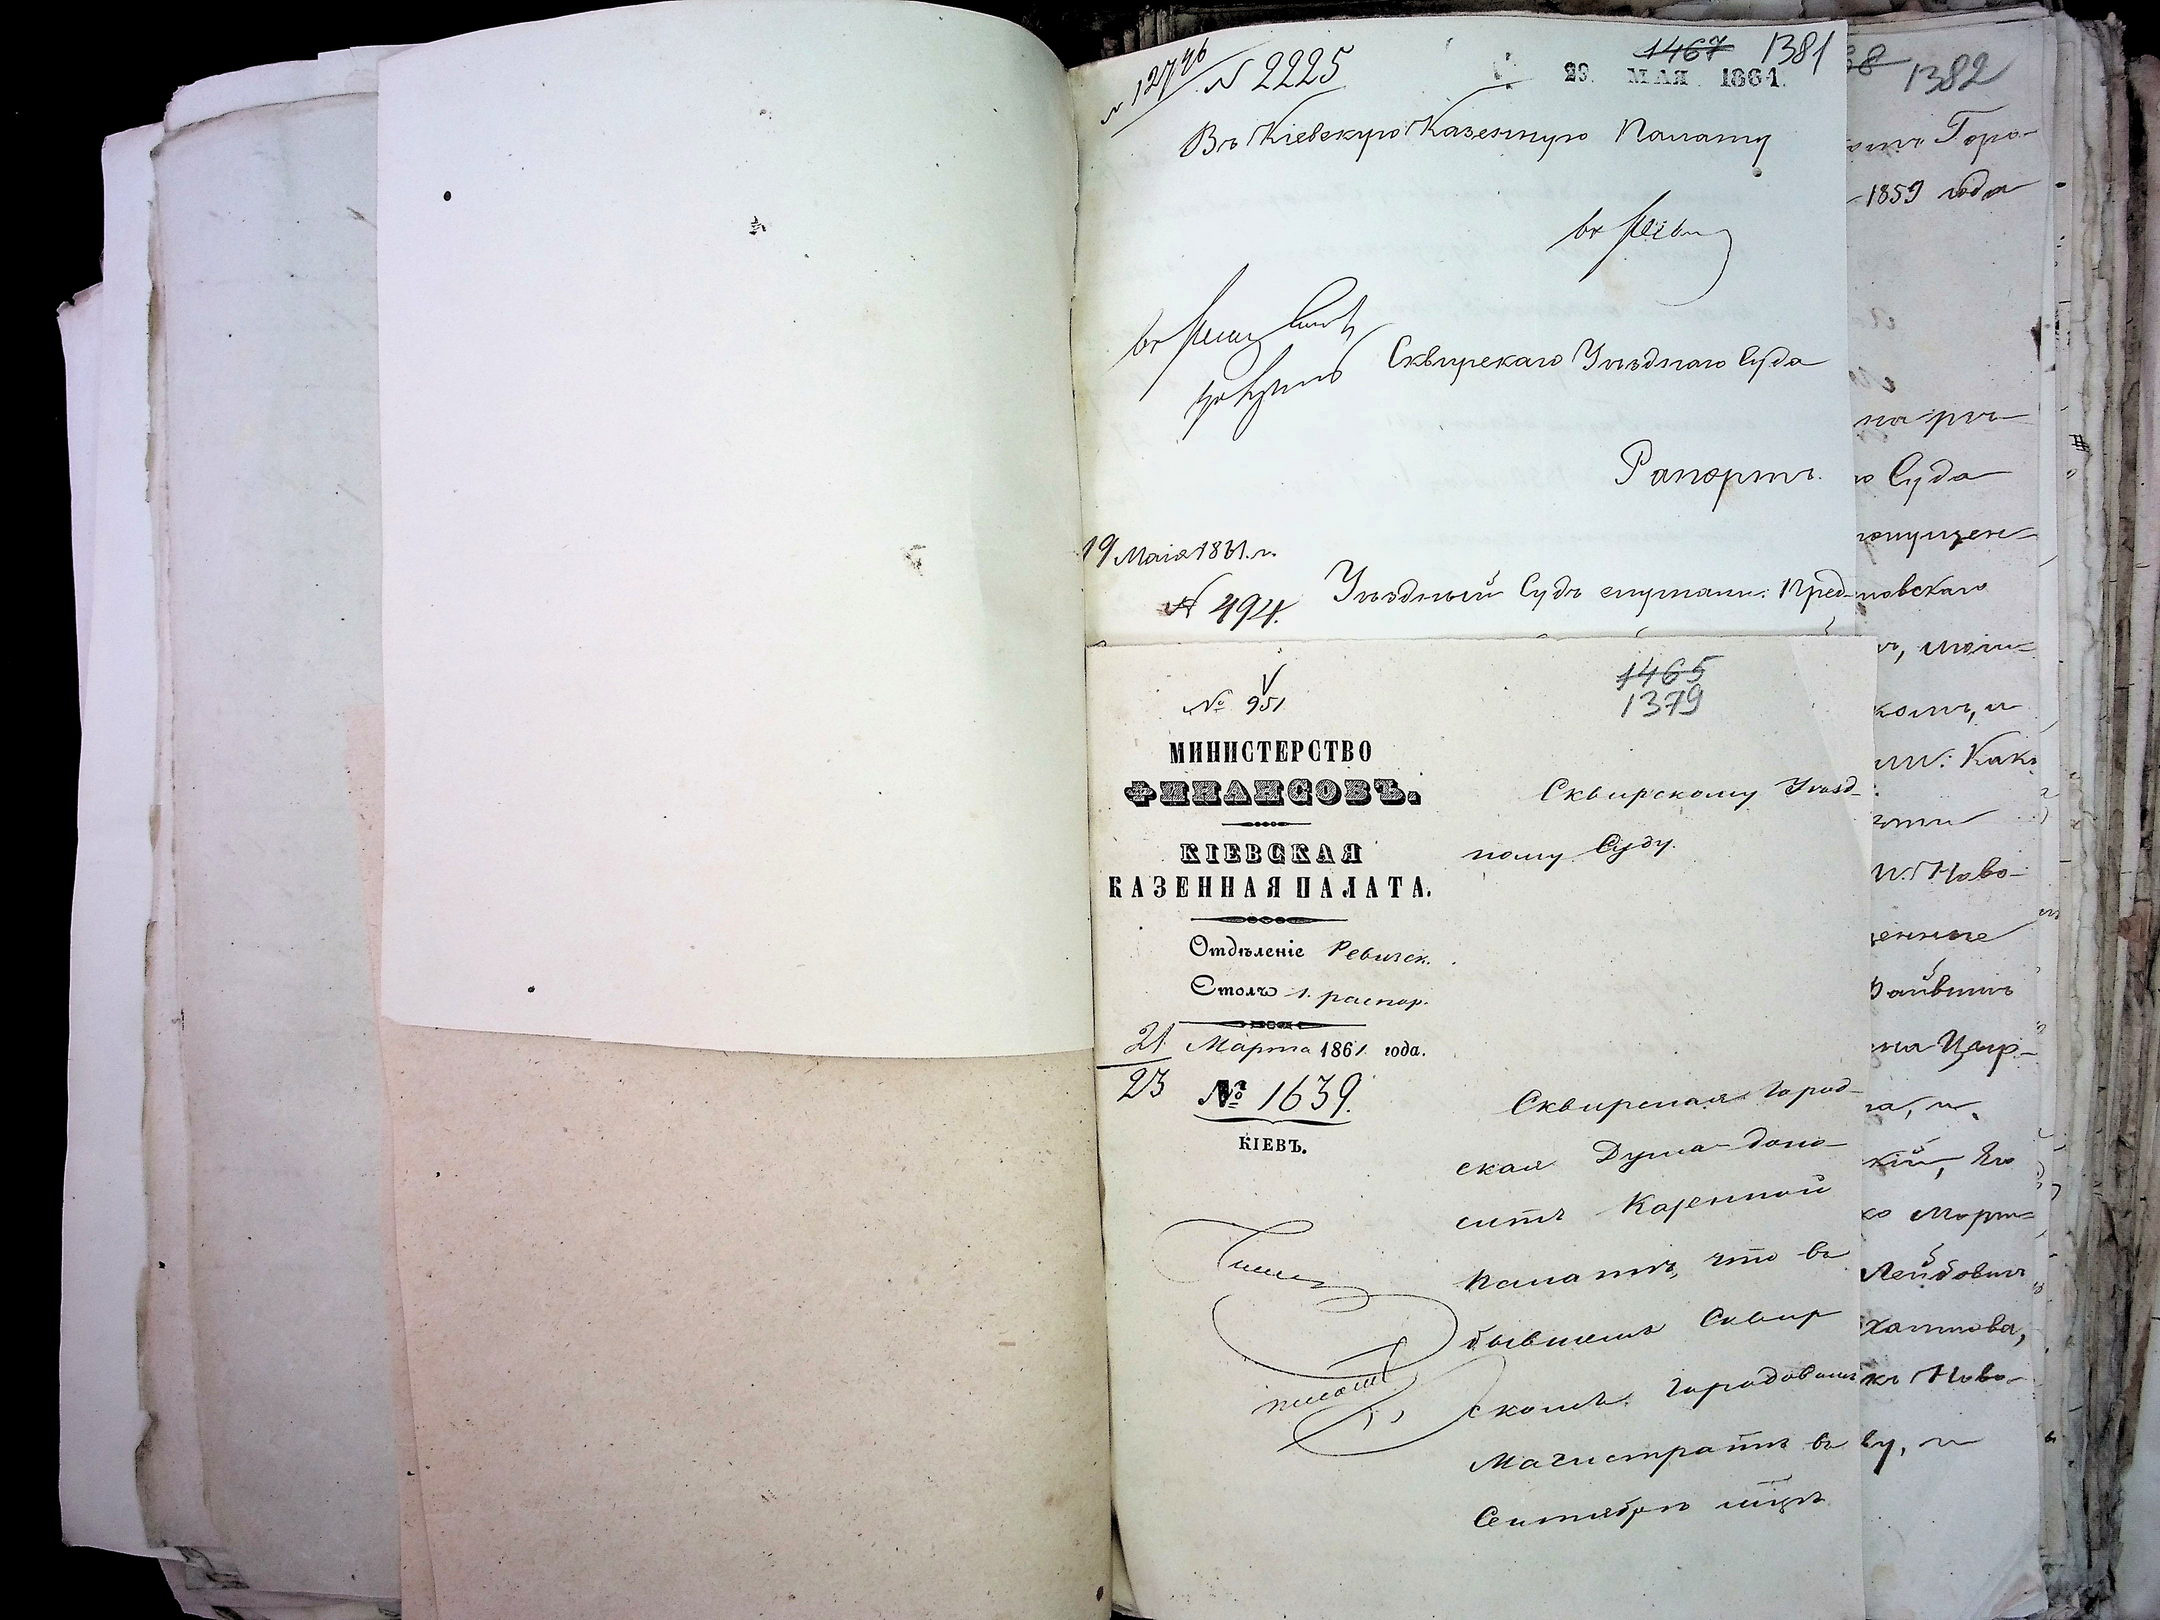 № 12796 № 2225
1467 1381
29 МАЯ 1861.
Въ Кіевскую Казенную Палату
Сквирскаго Уѣзднаго Суда
Рапортъ.
19 Маія 1861. г.
№ 494.
Уѣздный Судъ слушали: Пред-
№ 951
1465
1379
МИНИСТЕРСТВО
ФИНАНСОВЪ.
КІЕВСКАЯ
КАЗЕННАЯ ПАЛАТА.
Отдѣленіе Ревизск.
Столъ 1. распор.
21 Марта 1861 года.
23
№ 1639.
КІЕВЪ.
Сквирскому Уѣзд-
ному Суду.
Сквирская Город-
ская Дума доно-
ситъ Казенной
Палатѣ, что въ
бывшемъ Сквир
скомъ Городовомъ
Магистратѣ въ
Сентябрѣ мцѣ
68 1382
Горо-
1859 года
на рѣ-
Суда
новскаго
комъ, и
Какъ
Ново-
кій, Его
Лейбовичъ
Ново-
ву, и